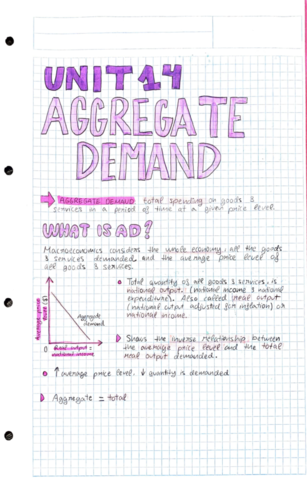 UNIT 14
AGGREGATE
DEMAND
AGGREGATE DEMAND total spending on goods &
services in a period of time at a given price level.
WHAT IS AD?
Macroeconomics considers the whole economy: all the goods
& services demanded, and the average price level of
all goods & services.
Total quantity of all goods & services, is
national output. (national income & national
expenditure). Also called real output
(national output adjusted for inflation) or
national income.
Average price
level ($)
Aggregate
demand
0
Real output =
national income
Shows the inverse relationship between
the average price level and the total
real output demanded.
↑ average price level. ↓ quantity is demanded
Aggregate = total